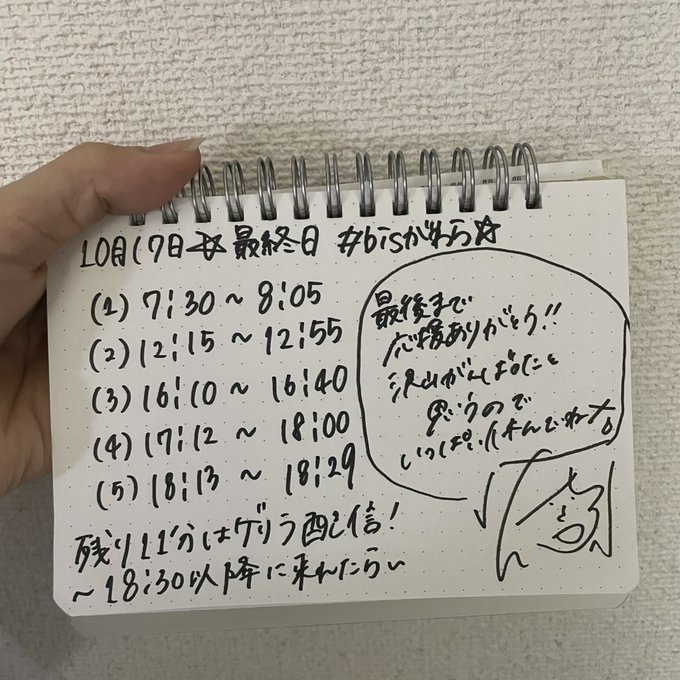 10月17日☆最終日 #bisがわら☆
(1) 7:30~8:05
(2) 12:15~12:55
(3) 16:10~16:40
(4) 17:12~18:00
(5) 18:13~18:29
残り11分はゲリラ配信!
~18:30以降に来れたら~
最後まで
応援ありがとう!!
沢山がんばったと
思うので
いっぱい